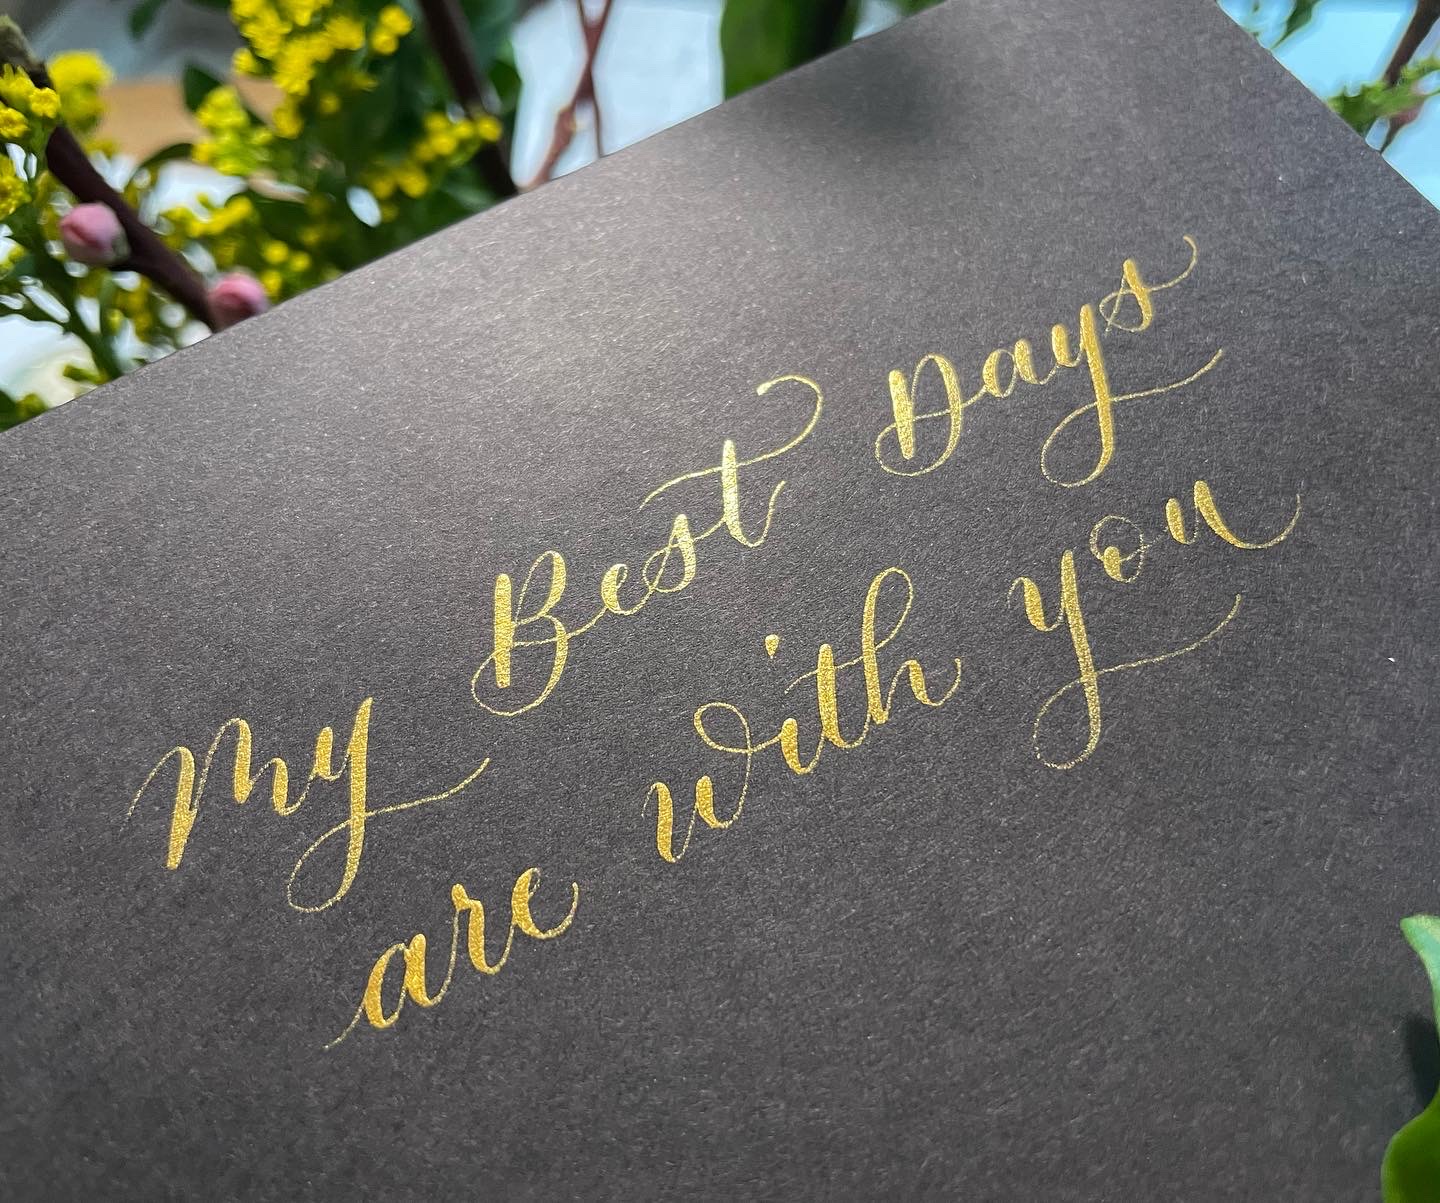 My Best Days
are with you